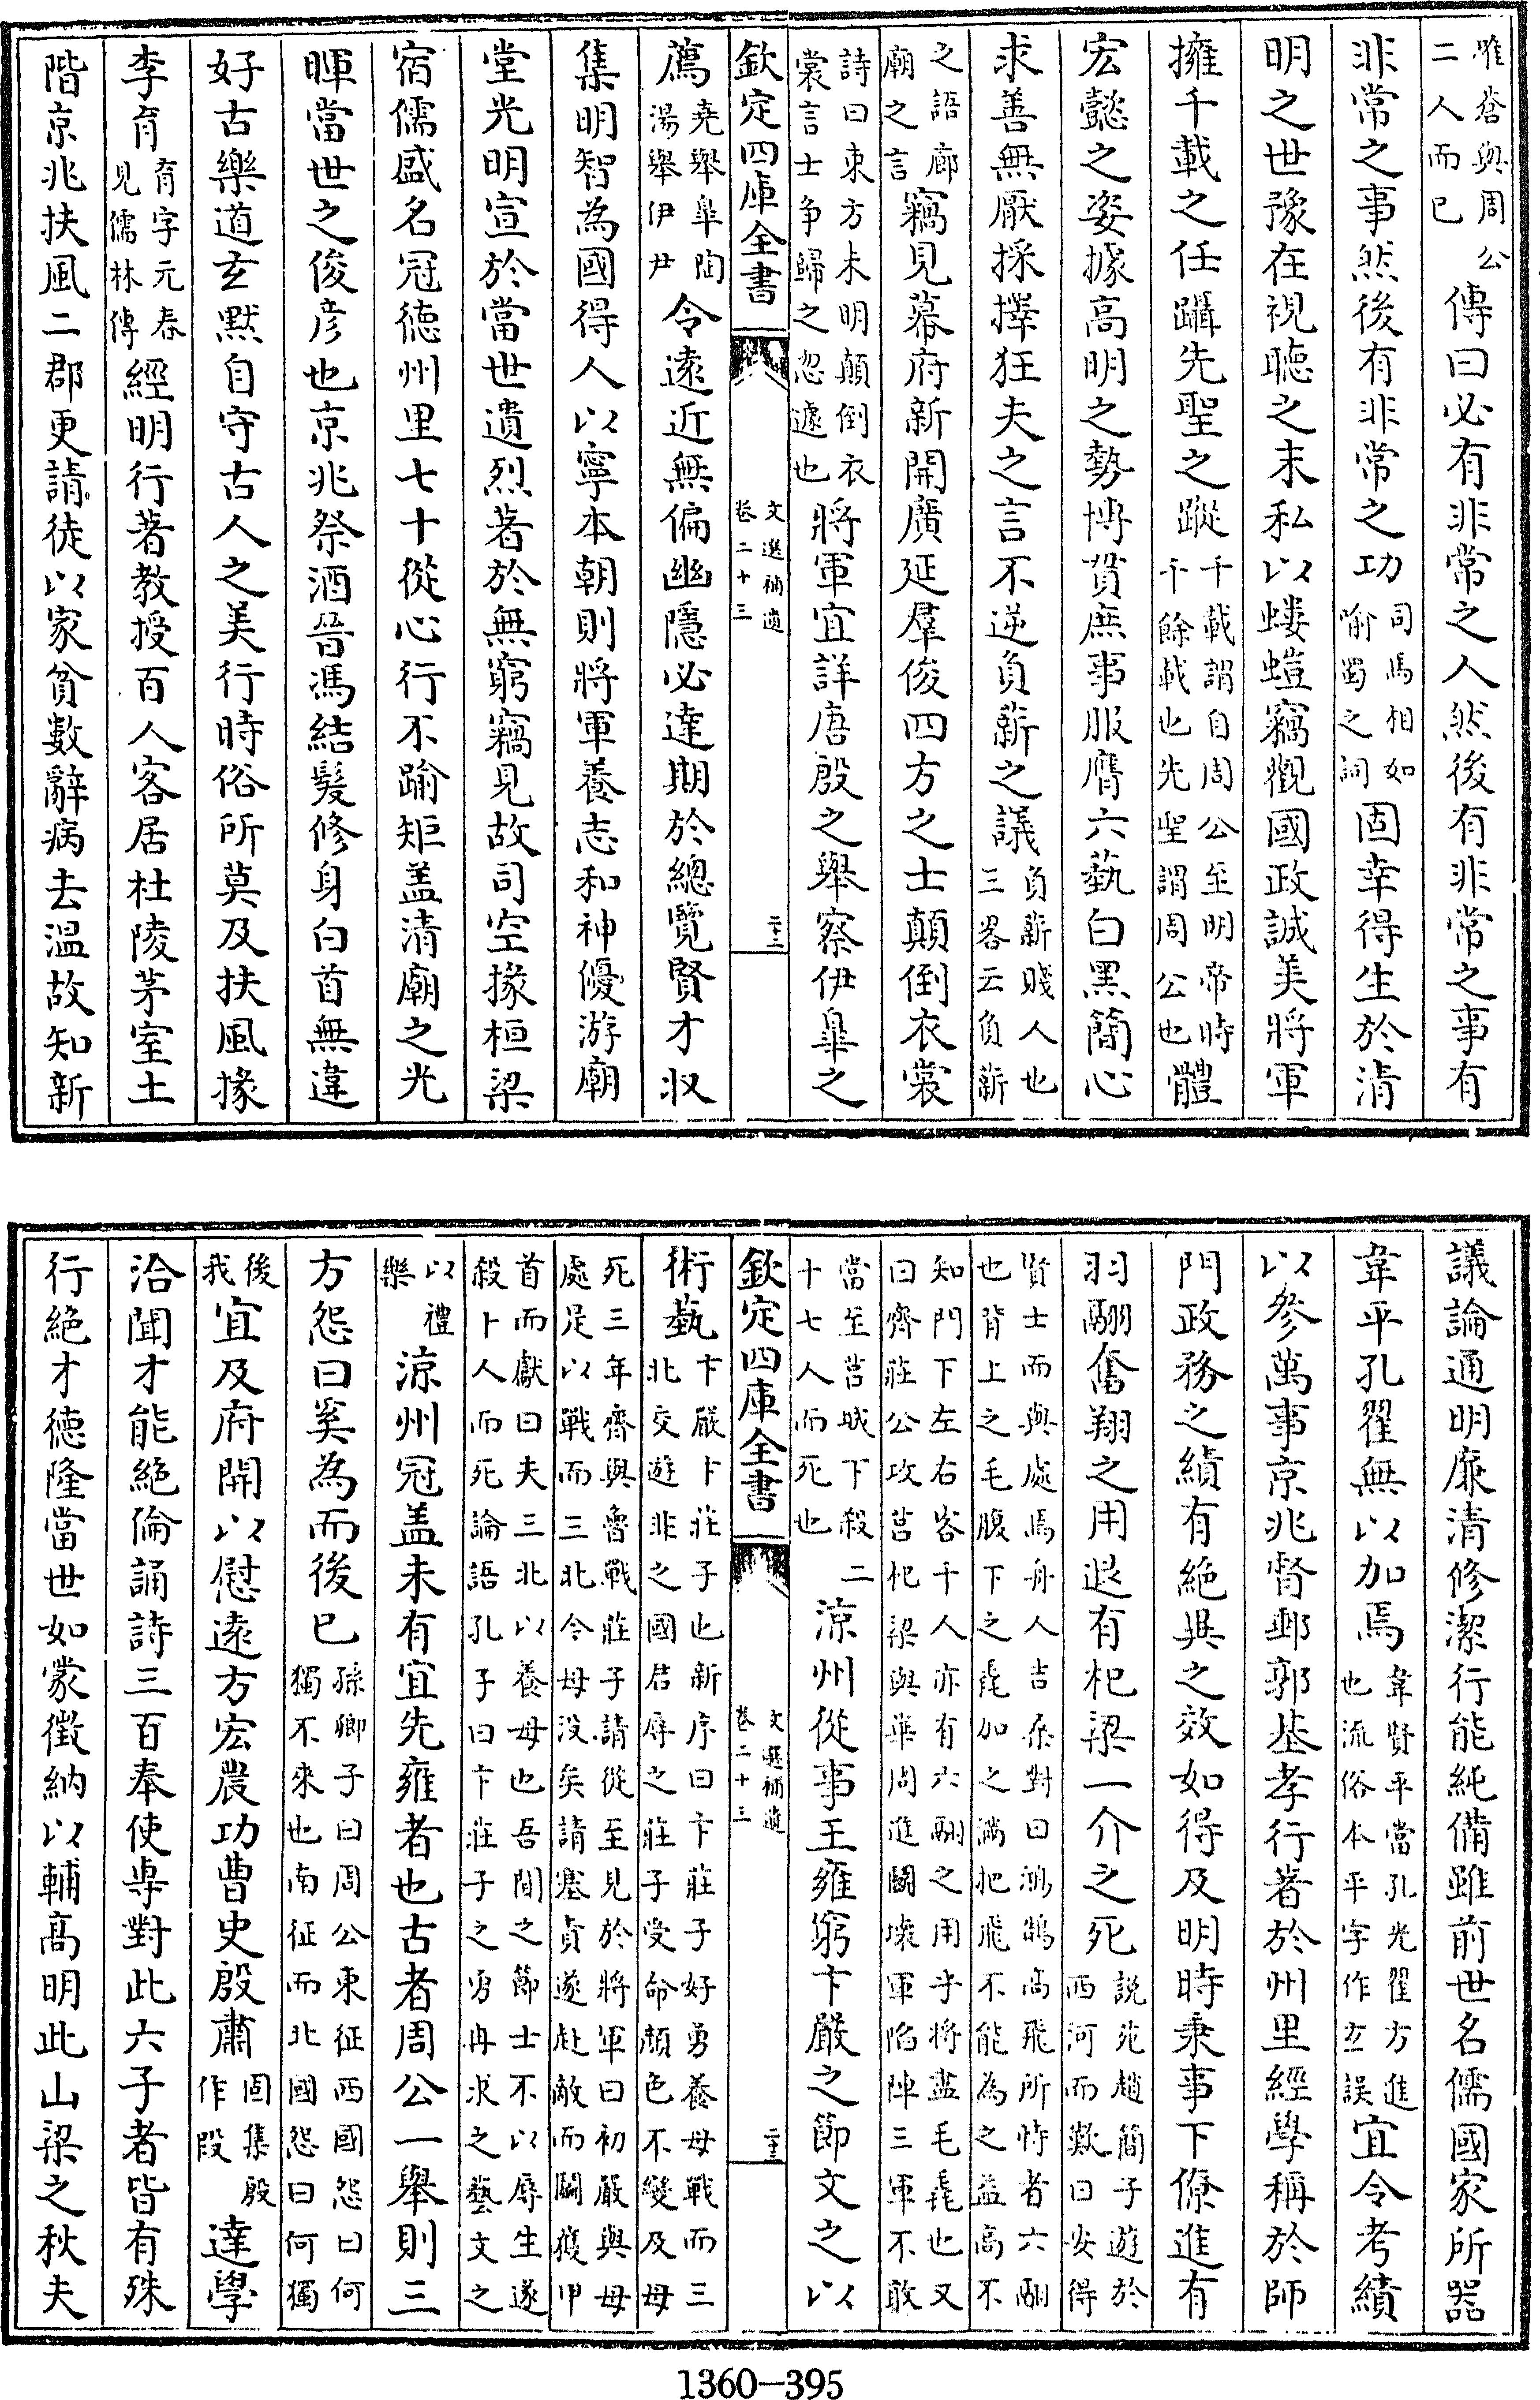 唯蒼與周公二人而已傳曰必有非常之人然後有非常之事有
非常之事然後有非常之功司馬相如喻蜀之詞固幸得生於清
明之世豫在視聽之末私以螻螘竊觀國政誠美將軍
擁千載之任躡先聖之蹤千載謂自周公至明帝時千餘載也先聖謂周公也體
宏懿之姿據高明之勢博貫庶事服膺六藝白黑簡心
求善無厭採擇狂夫之言不逆負薪之議負薪賤人也三畧云負薪
之語廊廟之言竊見幕府新開廣延羣俊四方之士顛倒衣裳
詩曰東方未明顛倒衣裳言士争歸之忽遽也將軍宜詳唐殷之舉察伊臯之
欽定四庫全書
文選補遺
卷二十三
二十二
薦堯舉臯陶湯舉伊尹令遠近無偏幽隱必達期於總覽賢才収
集明智為國得人以寧本朝則將軍養志和神優游廟
堂光明宣於當世遺烈著於無窮竊見故司空掾桓梁
宿儒盛名冠德州里七十從心行不踰矩盖清廟之光
暉當世之俊彦也京兆祭酒晉馮結髮修身白首無違
好古樂道玄默自守古人之美行時俗所莫及扶風掾
李育育字元春見儒林傳經明行著教授百人客居杜陵茅室土
階京兆扶風二郡更請徒以家貧數辭病去溫故知新
議論通明廉清修潔行能純備雖前世名儒國家所器
韋平孔翟無以加焉韋賢平當孔光翟方進也流俗本平字作玄誤宜令考績
以參萬事京兆督郵郭基孝行著於州里經學稱於師
門政務之績有絶異之效如得及明時秉事下僚進有
羽翮奮翔之用退有杞梁一介之死說苑趙簡子遊於西河而歎曰安得
賢士而與處焉舟人吉桑對曰鴻鵠高飛所恃者六翮也背上之毛腹下之毳加之滿把飛不能為之益高不
知門下左右客千人亦有六翮之用乎將盡毛毳也又曰齊莊公攻莒杞梁與華周進鬬壞軍陷陣三軍不敢
當至莒城下殺二十七人而死也涼州從事王雍窮卞嚴之節文之以
欽定四庫全書
文選補遺
卷二十三
二十三
術藝卞嚴卞莊子也新序曰卞莊子好勇養母戰而三北交遊非之國君辱之莊子受命顏色不變及母
死三年齊與魯戰莊子請從至見於將軍曰初嚴與母處是以戰而三北今母没矣請塞責遂赴敵而鬬獲甲
首而獻曰夫三北以養母也吾聞之節士不以辱生遂殺卜人而死論語孔子曰卞莊子之勇冉求之藝文之
以禮樂涼州冠盖未有宜先雍者也古者周公一舉則三
方怨曰奚為而後已孫卿子曰周公東征西國怨曰何獨不來也南征而北國怨曰何獨
後我宜及府開以慰遠方宏農功曹史殷肅固集殷作段達學
洽聞才能絶倫誦詩三百奉使専對此六子者皆有殊
行絶才德隆當世如蒙徵納以輔高明此山梁之秋夫
1360-395